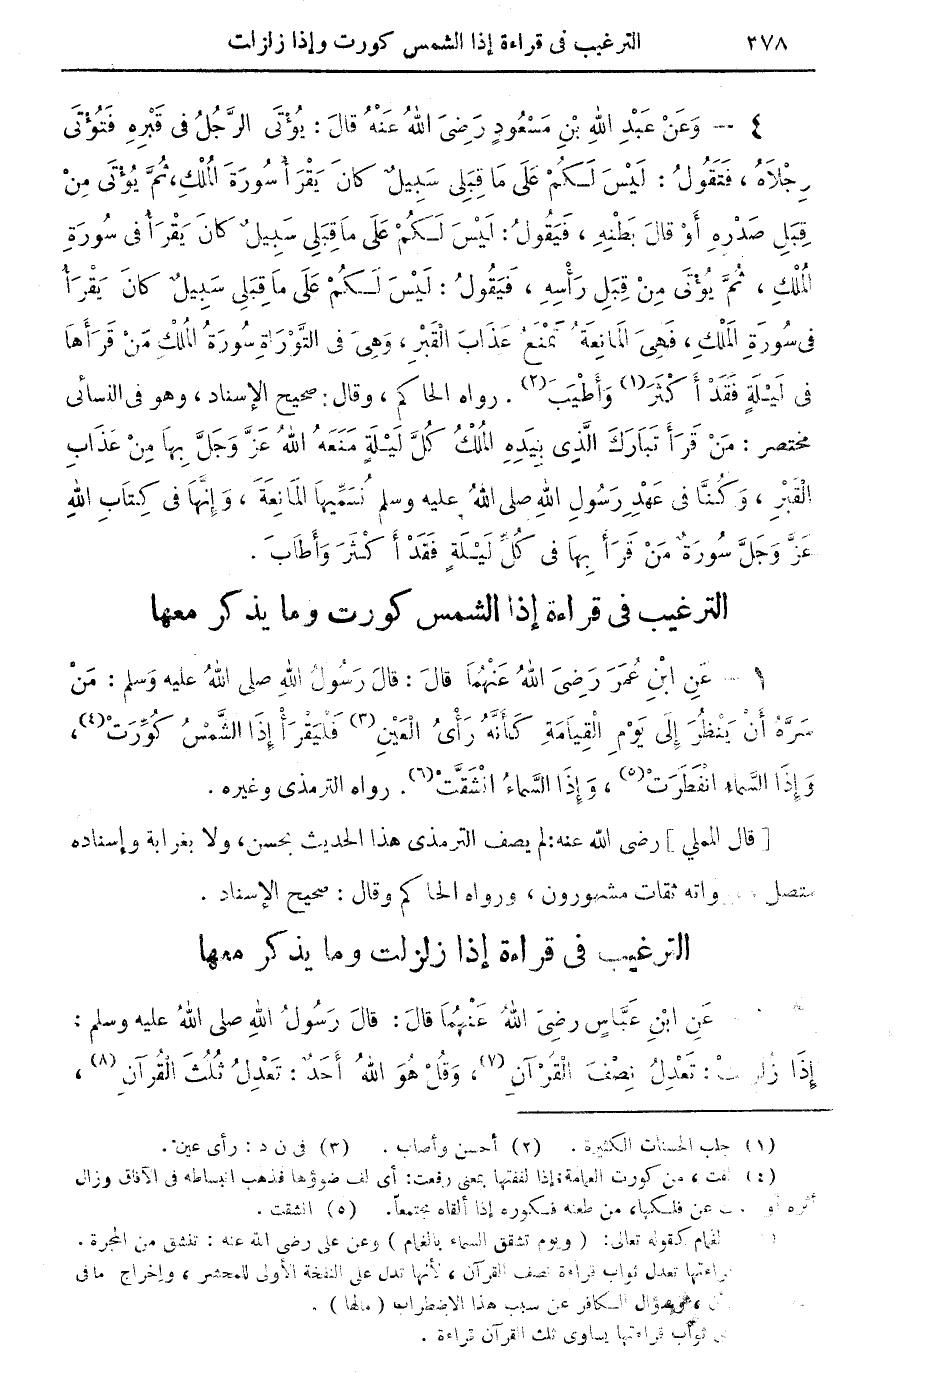 ٣٧٨ الترغيب فى قراءة إذا الشمس كورت وإذا زلزلت
٤ — وَعَنْ عَبْدِ اللهِ بْنِ مَسْعُودٍ رَضِىَ اللهُ عَنْهُ قالَ : يُؤْتَى الرَّجُلُ فى قَبْرِهِ فَتُؤْتَى
رِجْلاَهُ ، فَتَقُولُ : لَيْسَ لَكُمْ عَلَى مَا قِبَلِى سَبِيلٌ كانَ يَقْرَأُ سُورَةَ الْمُلْكِ، ثُمَّ يُؤْتَى مِنْ
قِبَلِ صَدْرِهِ أَوْ قالَ بَطْنِهِ ، فَيَقُولُ : لَيْسَ لَكُمْ عَلَى مَا قِبَلِى سَبِيلٌ كانَ يَقْرَأُ فى سُورَةِ
الْمُلْكِ ، ثُمَّ يُؤْتَى مِنْ قِبَلِ رَأْسِهِ ، فَيَقُولُ : لَيْسَ لَكُمْ عَلَى مَا قِبَلِى سَبِيلٌ كانَ يَقْرَأُ
فى سُورَةِ الْمَلْكِ ، فَهِىَ الْمَانِعَةُ تَمْنَعُ عَذَابَ الْقَبْرِ ، وَهِىَ فى التَّوْرَاةِ سُورَةُ الْمُلْكِ مَنْ قَرَأَهَا
فى لَيْلَةٍ فَقَدْ أَكْثَرَ(١) وَأَطْيَبَ(٢). رواه الحاكم ، وقال : صحيح الإسناد ، وهو فى النسائى
مختصر : مَنْ قَرَأَ تَبَارَكَ الَّذِى بِيَدِهِ الْمُلْكُ كُلَّ لَيْلَةٍ مَنَعَهُ اللهُ عَزَّ وَجَلَّ بِهَا مِنْ عَذَابِ
الْقَبْرِ ، وَكُنَّا فى عَهْدِ رَسُولِ اللهِ صلى اللهُ عليه وسلم نُسَمِّيهَا الْمَانِعَةَ ، وَإِنَّهَا فى كِتَابِ اللهِ
عَزَّ وَجَلَّ سُورَةٌ مَنْ قَرَأَ بِهَا فى كُلِّ لَيْلَةٍ فَقَدْ أَكْثَرَ وَأَطَابَ .
الترغيب فى قراءة إذا الشمس كورت وما يذكر معها
١ — عَنِ ابْنِ عُمَرَ رَضِىَ اللهُ عَنْهُمَا قالَ : قالَ رَسُولُ اللهِ صلى اللهُ عليه وَسلم : مَنْ
سَرَّهُ أَنْ يَنْظُرَ إِلَى يَوْمِ الْقِيَامَةِ كَأَنَّهُ رَأْىُ الْعَيْنِ(٣) فَلْيَقْرَأْ إِذَا الشَّمْسُ كُوِّرَتْ(٤)،
وَإِذَا السَّمَاءُ انْفَطَرَتْ(٥) ، وَإِذَا السَّمَاءُ انْشَقَّتْ(٦). رواه الترمذى وغيره .
[ قال المملي ] رضى الله عنه: لم يصف الترمذى هذا الحديث بحسن، ولا بغرابة وإسناده
متصل واته ثقات مشهورون ، ورواه الحاكم وقال : صحيح الإسناد .
الترغيب فى قراءة إذا زلزلت وما يذكر معها
عَنِ ابْنِ عَبَّاسٍ رضِىَ اللهُ عَنْهُمَا قالَ : قالَ رَسُولُ اللهِ صلى اللهُ عليه وسلم :
إِذَا زُلْزِلَتْ : تَعْدِلُ نِصْفَ الْقُرْآنِ(٧)، وَقُلْ هُوَ اللهُ أَحَدٌ : تَعْدِلُ ثُلُثَ الْقُرآنِ(٨) ،
(١) جلب الحسنات الكثيرة . (٢) أحسن وأصاب . (٣) فى ن د : رأى عين .
(٤) لفت ، من كورت العمامة: إذا لففتها بمعنى رفعت: أى لف ضوؤها فذهب انبساطه فى الآفاق وزال
أثره أو عن فلكها، من طعنه فكوره إذا ألقاه مجتمعاً. (٥) انشقت .
الغمام كقوله تعالى: ( ويوم تشقق السماء بالغمام ) وعن على رضى الله عنه : تنشق من المجرة .
قراءتها تعدل ثواب قراءة نصف القرآن ، لأنها تدل على النفخة الأولى للمحشر ، وإخراج ما فى
، وسؤال الكافر عن سبب هذا الاضطراب ( مالها ) .
ثواب قراءتها يساوى ثلث القرآن قراءة .